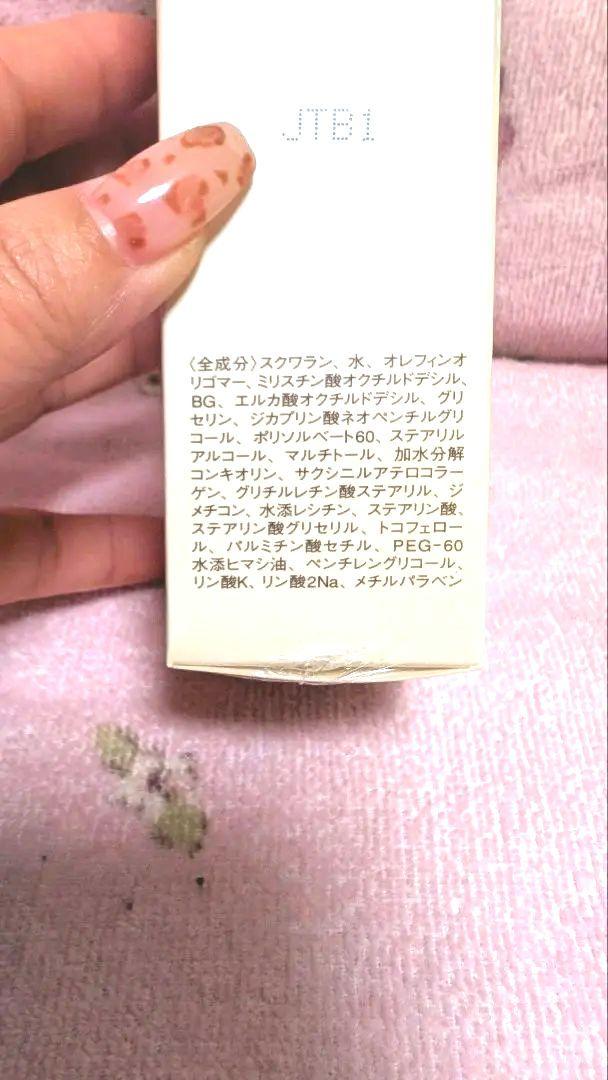 JTB1
〈全成分〉スクワラン、水、オレフィンオ
リゴマー、ミリスチン酸オクチルドデシル、
BG、エルカ酸オクチルドデシル、グリ
セリン、ジカプリン酸ネオペンチルグリ
コール、ポリソルベート60、ステアリル
アルコール、マルチトール、加水分解
コンキオリン、サクシニルアテロコラー
ゲン、グリチルレチン酸ステアリル、ジ
メチコン、水添レシチン、ステアリン酸、
ステアリン酸グリセリル、トコフェロー
ル、パルミチン酸セチル、PEG-60
水添ヒマシ油、ペンチレングリコール、
リン酸K、リン酸2Na、メチルパラベン